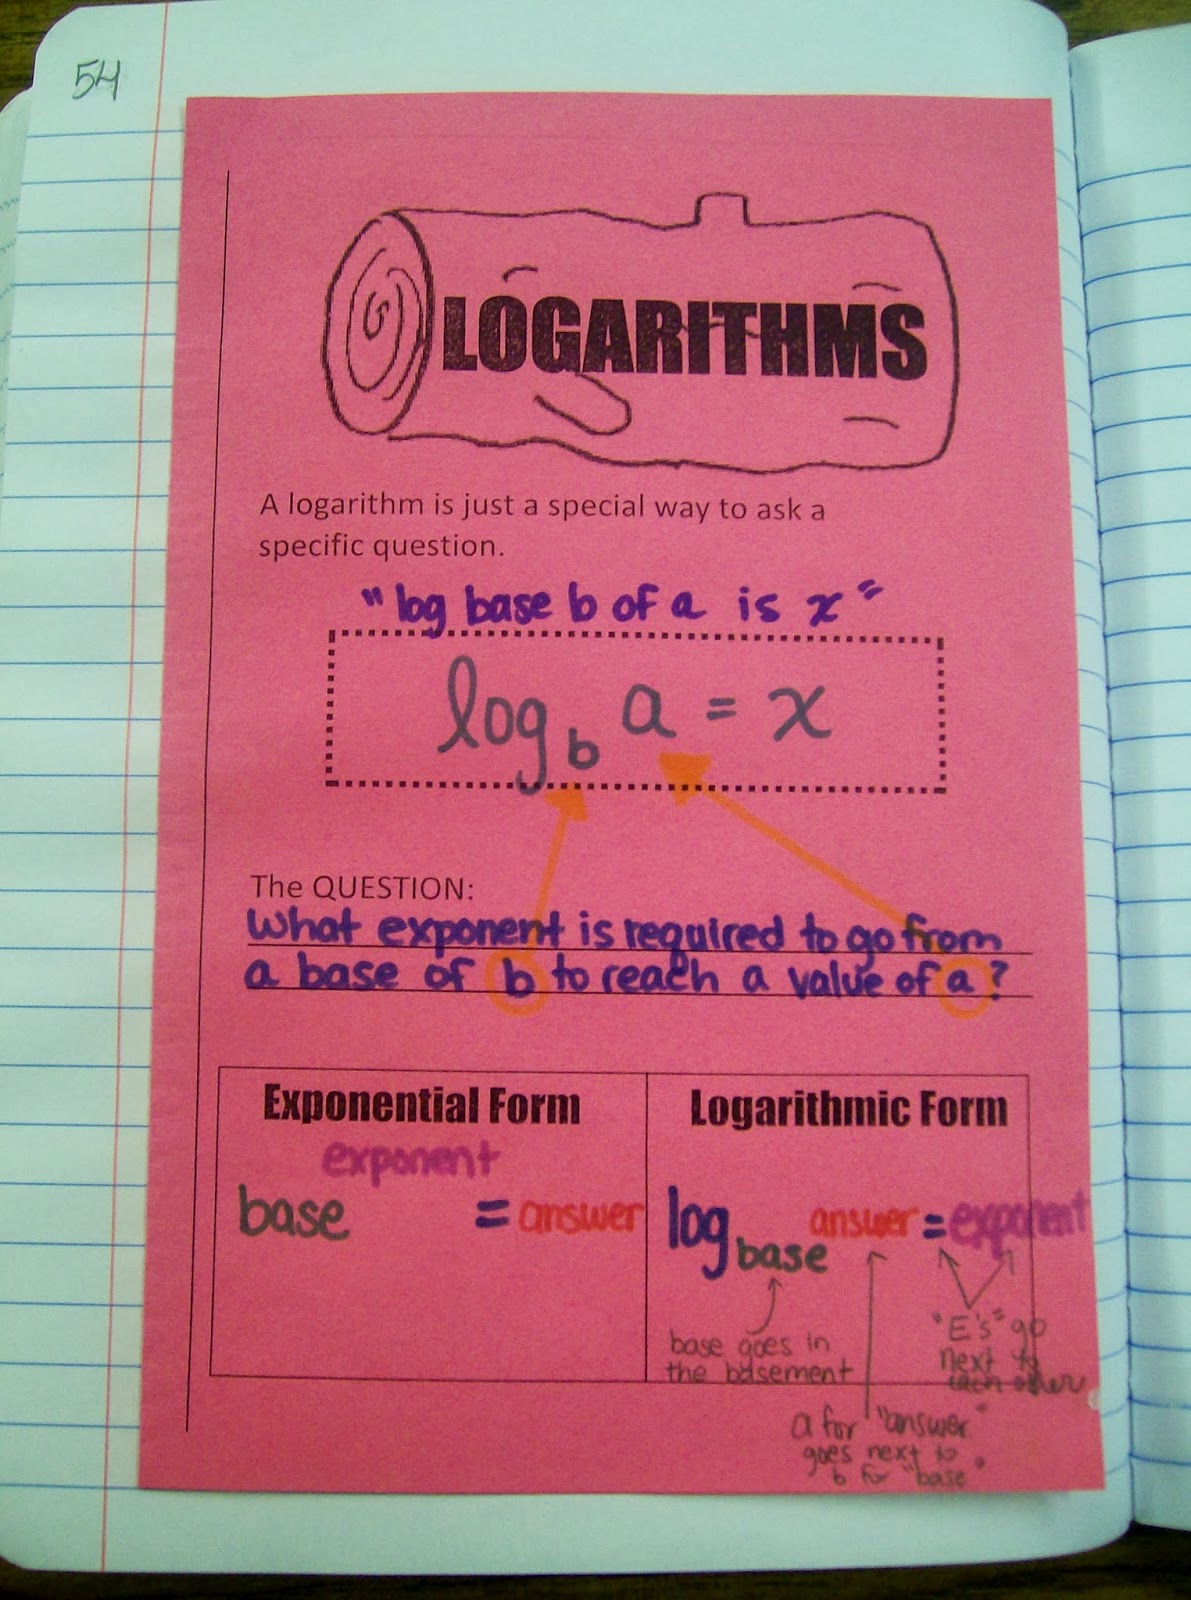 54
LOGARITHMS
A logarithm is just a special way to ask a
specific question.
"log base b of a is x"
log_b a = x
The QUESTION:
What exponent is required to go from
a base of b to reach a value of a?
Exponential Form
exponent
base = answer
Logarithmic Form
log_base answer = exponent
base goes in
the basement
"E's" go
next to
each other
a for "answer"
goes next to
b for "base"